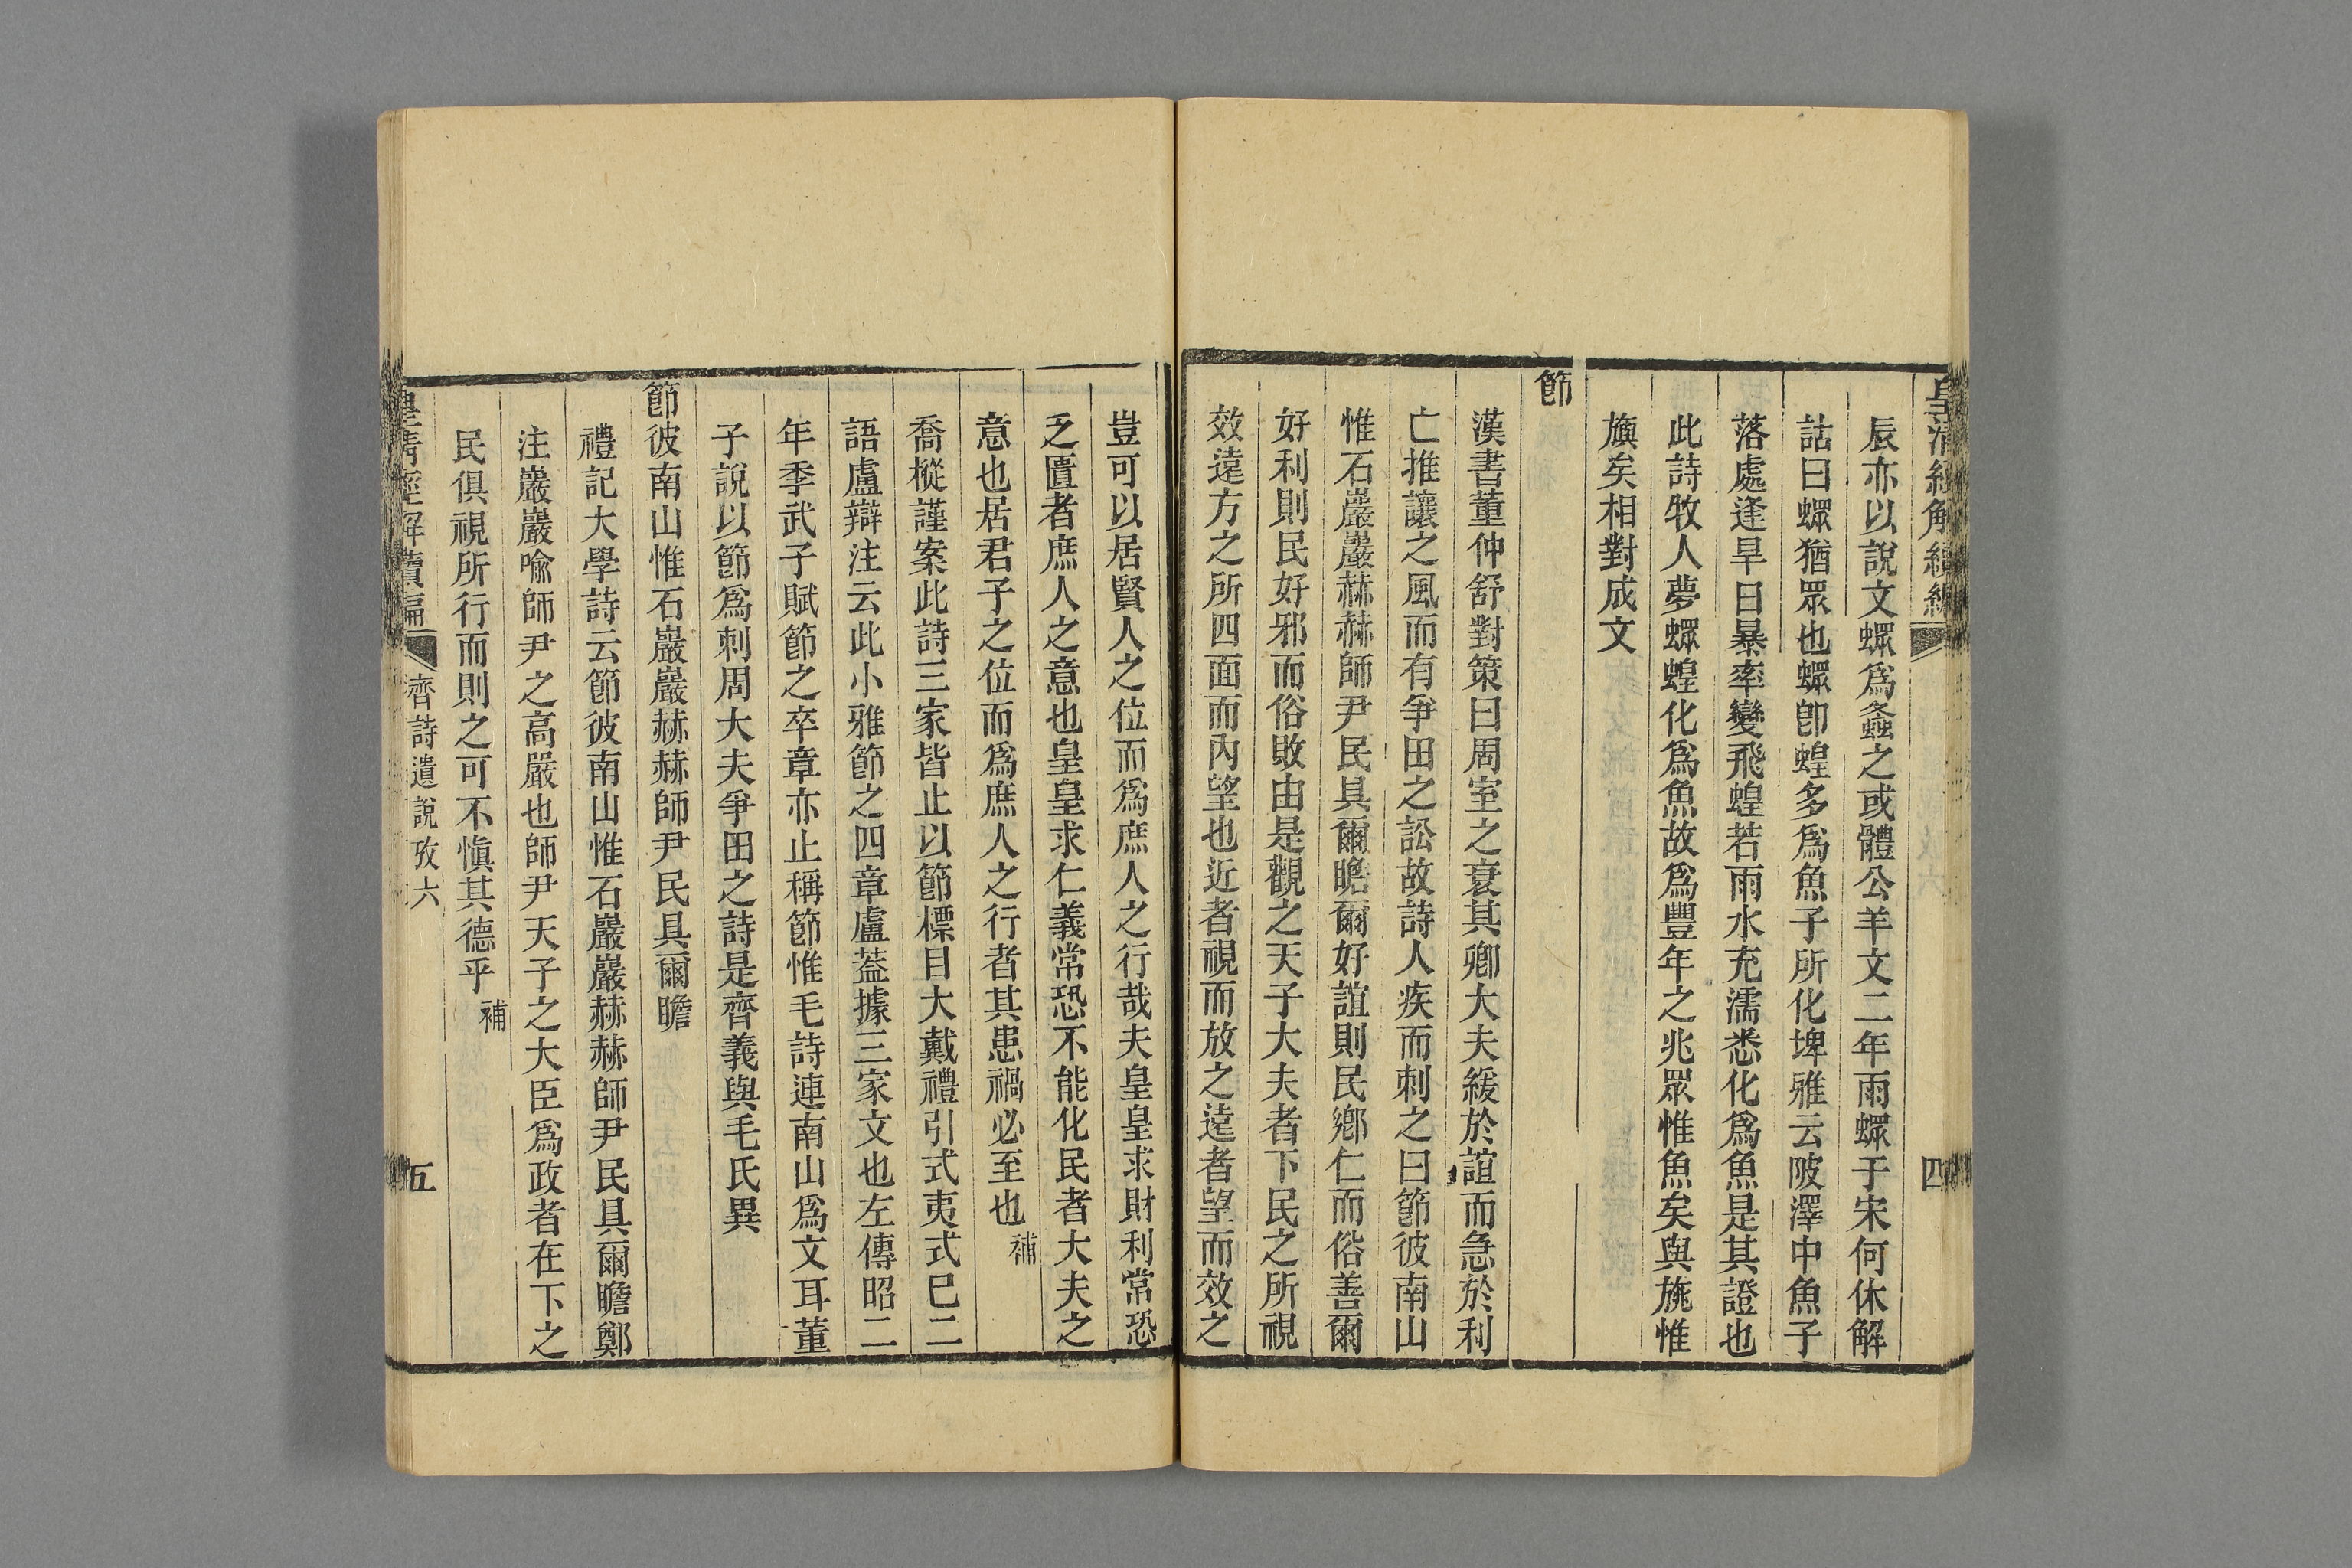 皇清經解續編
四
辰亦以說文螺爲螽之或體公羊文二年雨螺于宋何休解
詁曰螺猶眾也螺卽蝗多爲魚子所化埤雅云陂澤中魚子
落處逢旱日暴率變飛蝗若雨水充濡悉化爲魚是其證也
此詩牧人夢螺蝗化爲魚故爲豐年之兆眾惟魚矣與旐惟
旟矣相對成文
節
漢書董仲舒對策曰周室之衰其卿大夫緩於誼而急於利
亡推讓之風而有爭田之訟故詩人疾而刺之曰節彼南山
惟石巖巖赫赫師尹民具爾瞻爾好誼則民鄉仁而俗善爾
好利則民好邪而俗敗由是觀之天子大夫者下民之所視
效遠方之所四面而內望也近者視而放之遠者望而效之
豈可以居賢人之位而爲庶人之行哉夫皇皇求財利常恐
乏匱者庶人之意也皇皇求仁義常恐不能化民者大夫之
意也居君子之位而爲庶人之行者其患禍必至也補
喬樅謹案此詩三家皆止以節標目大戴禮引式夷式已二
語盧辯注云此小雅節之四章盧葢據三家文也左傳昭二
年季武子賦節之卒章亦止稱節惟毛詩連南山爲文耳董
子說以節爲刺周大夫爭田之詩是齊義與毛氏異
節彼南山惟石巖巖赫赫師尹民具爾瞻
禮記大學詩云節彼南山惟石巖巖赫赫師尹民具爾瞻鄭
注巖巖喩師尹之高嚴也師尹天子之大臣爲政者在下之
民俱視所行而則之可不愼其德乎補
皇清經解續編
齊詩遺說攷六
五